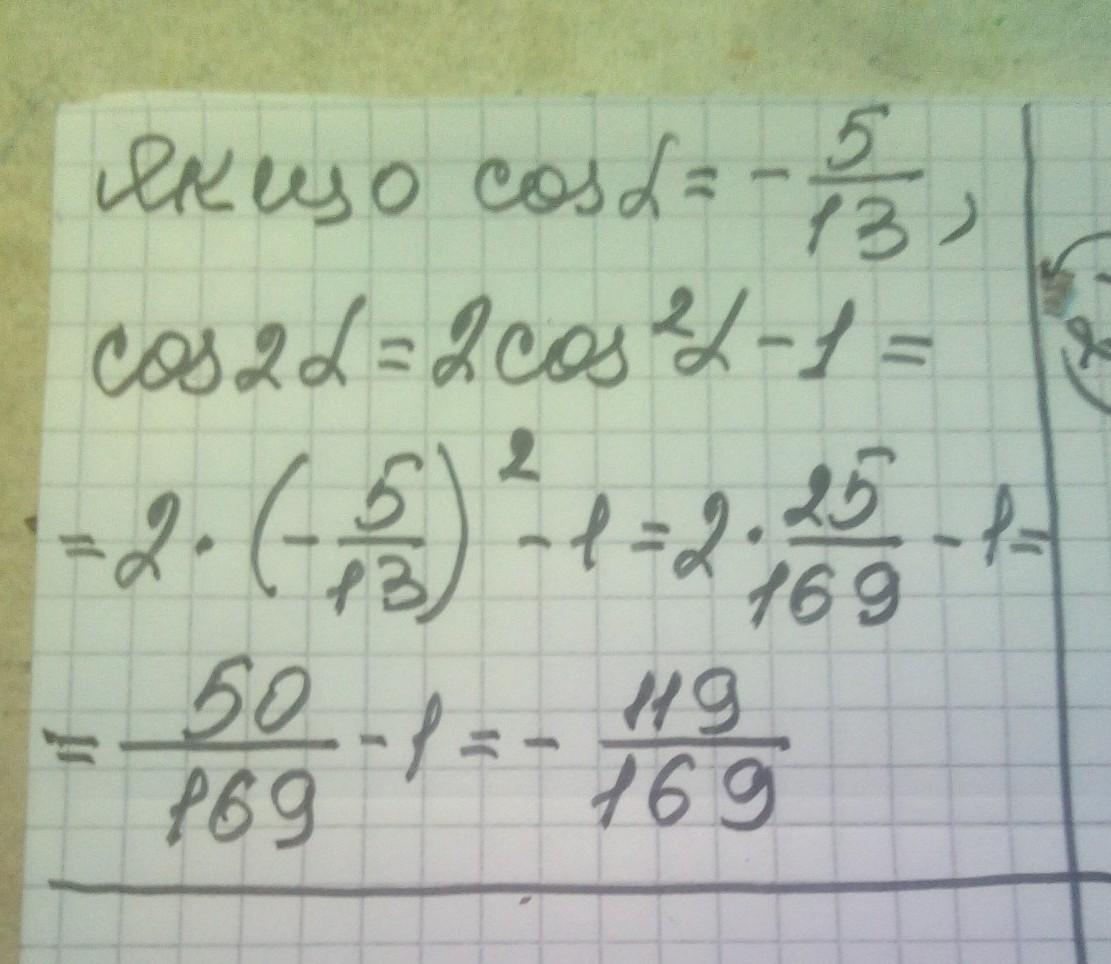 Якщо cosα = - 5/13,
cos2α = 2cos²α - 1 =
= 2 · (- 5/13)² - 1 = 2 · 25/169 - 1 =
= 50/169 - 1 = - 119/169